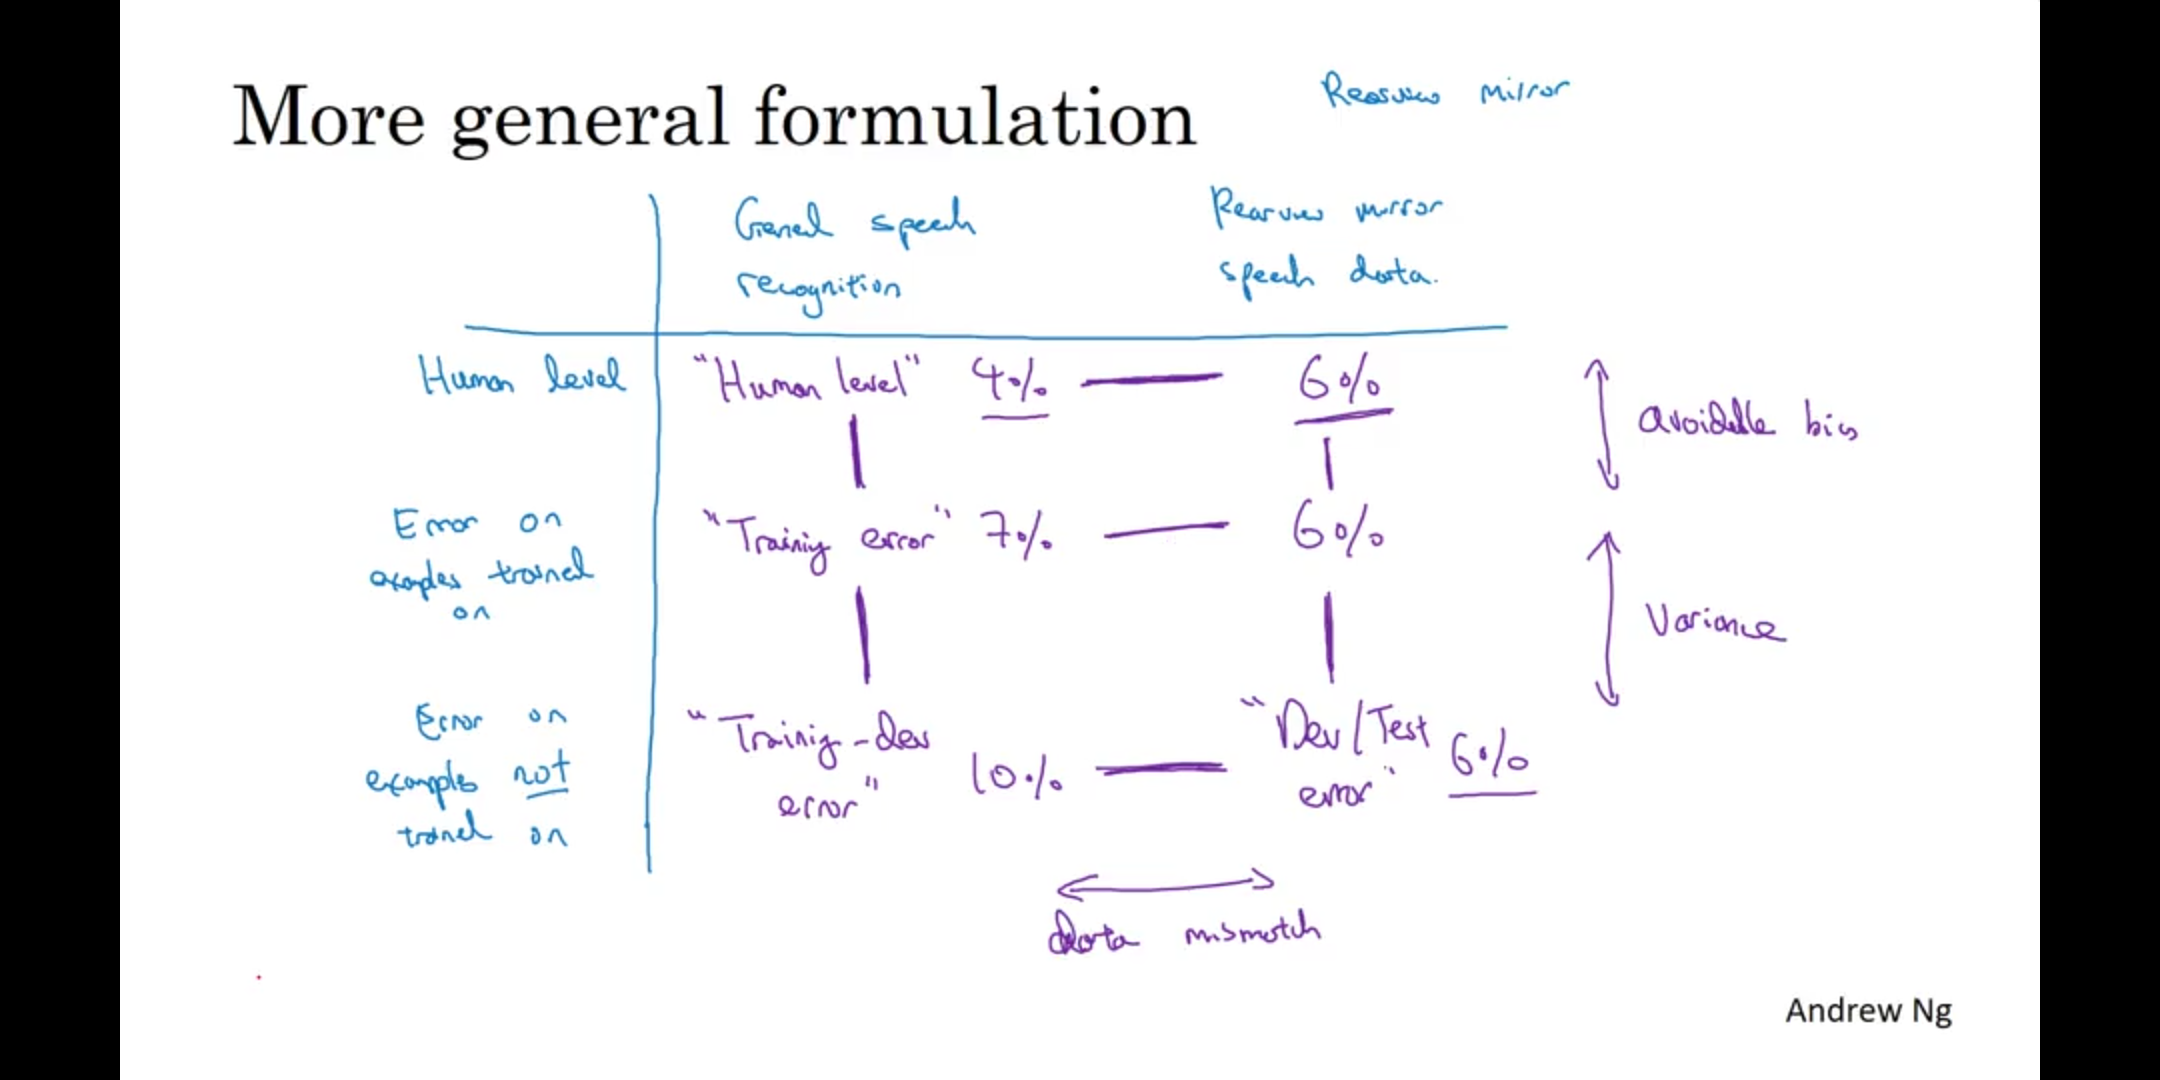 More general formulation
Rearview mirror
General speech
recognition
Rearview mirror
speech data.
Human level
"Human level" 4%
6%
avoidable bias
Error on
examples trained
on
"Training error" 7%
6%
Variance
Error on
examples not
trained on
"Training-dev
error" 10%
"Dev/Test
error" 6%
data mismatch
Andrew Ng